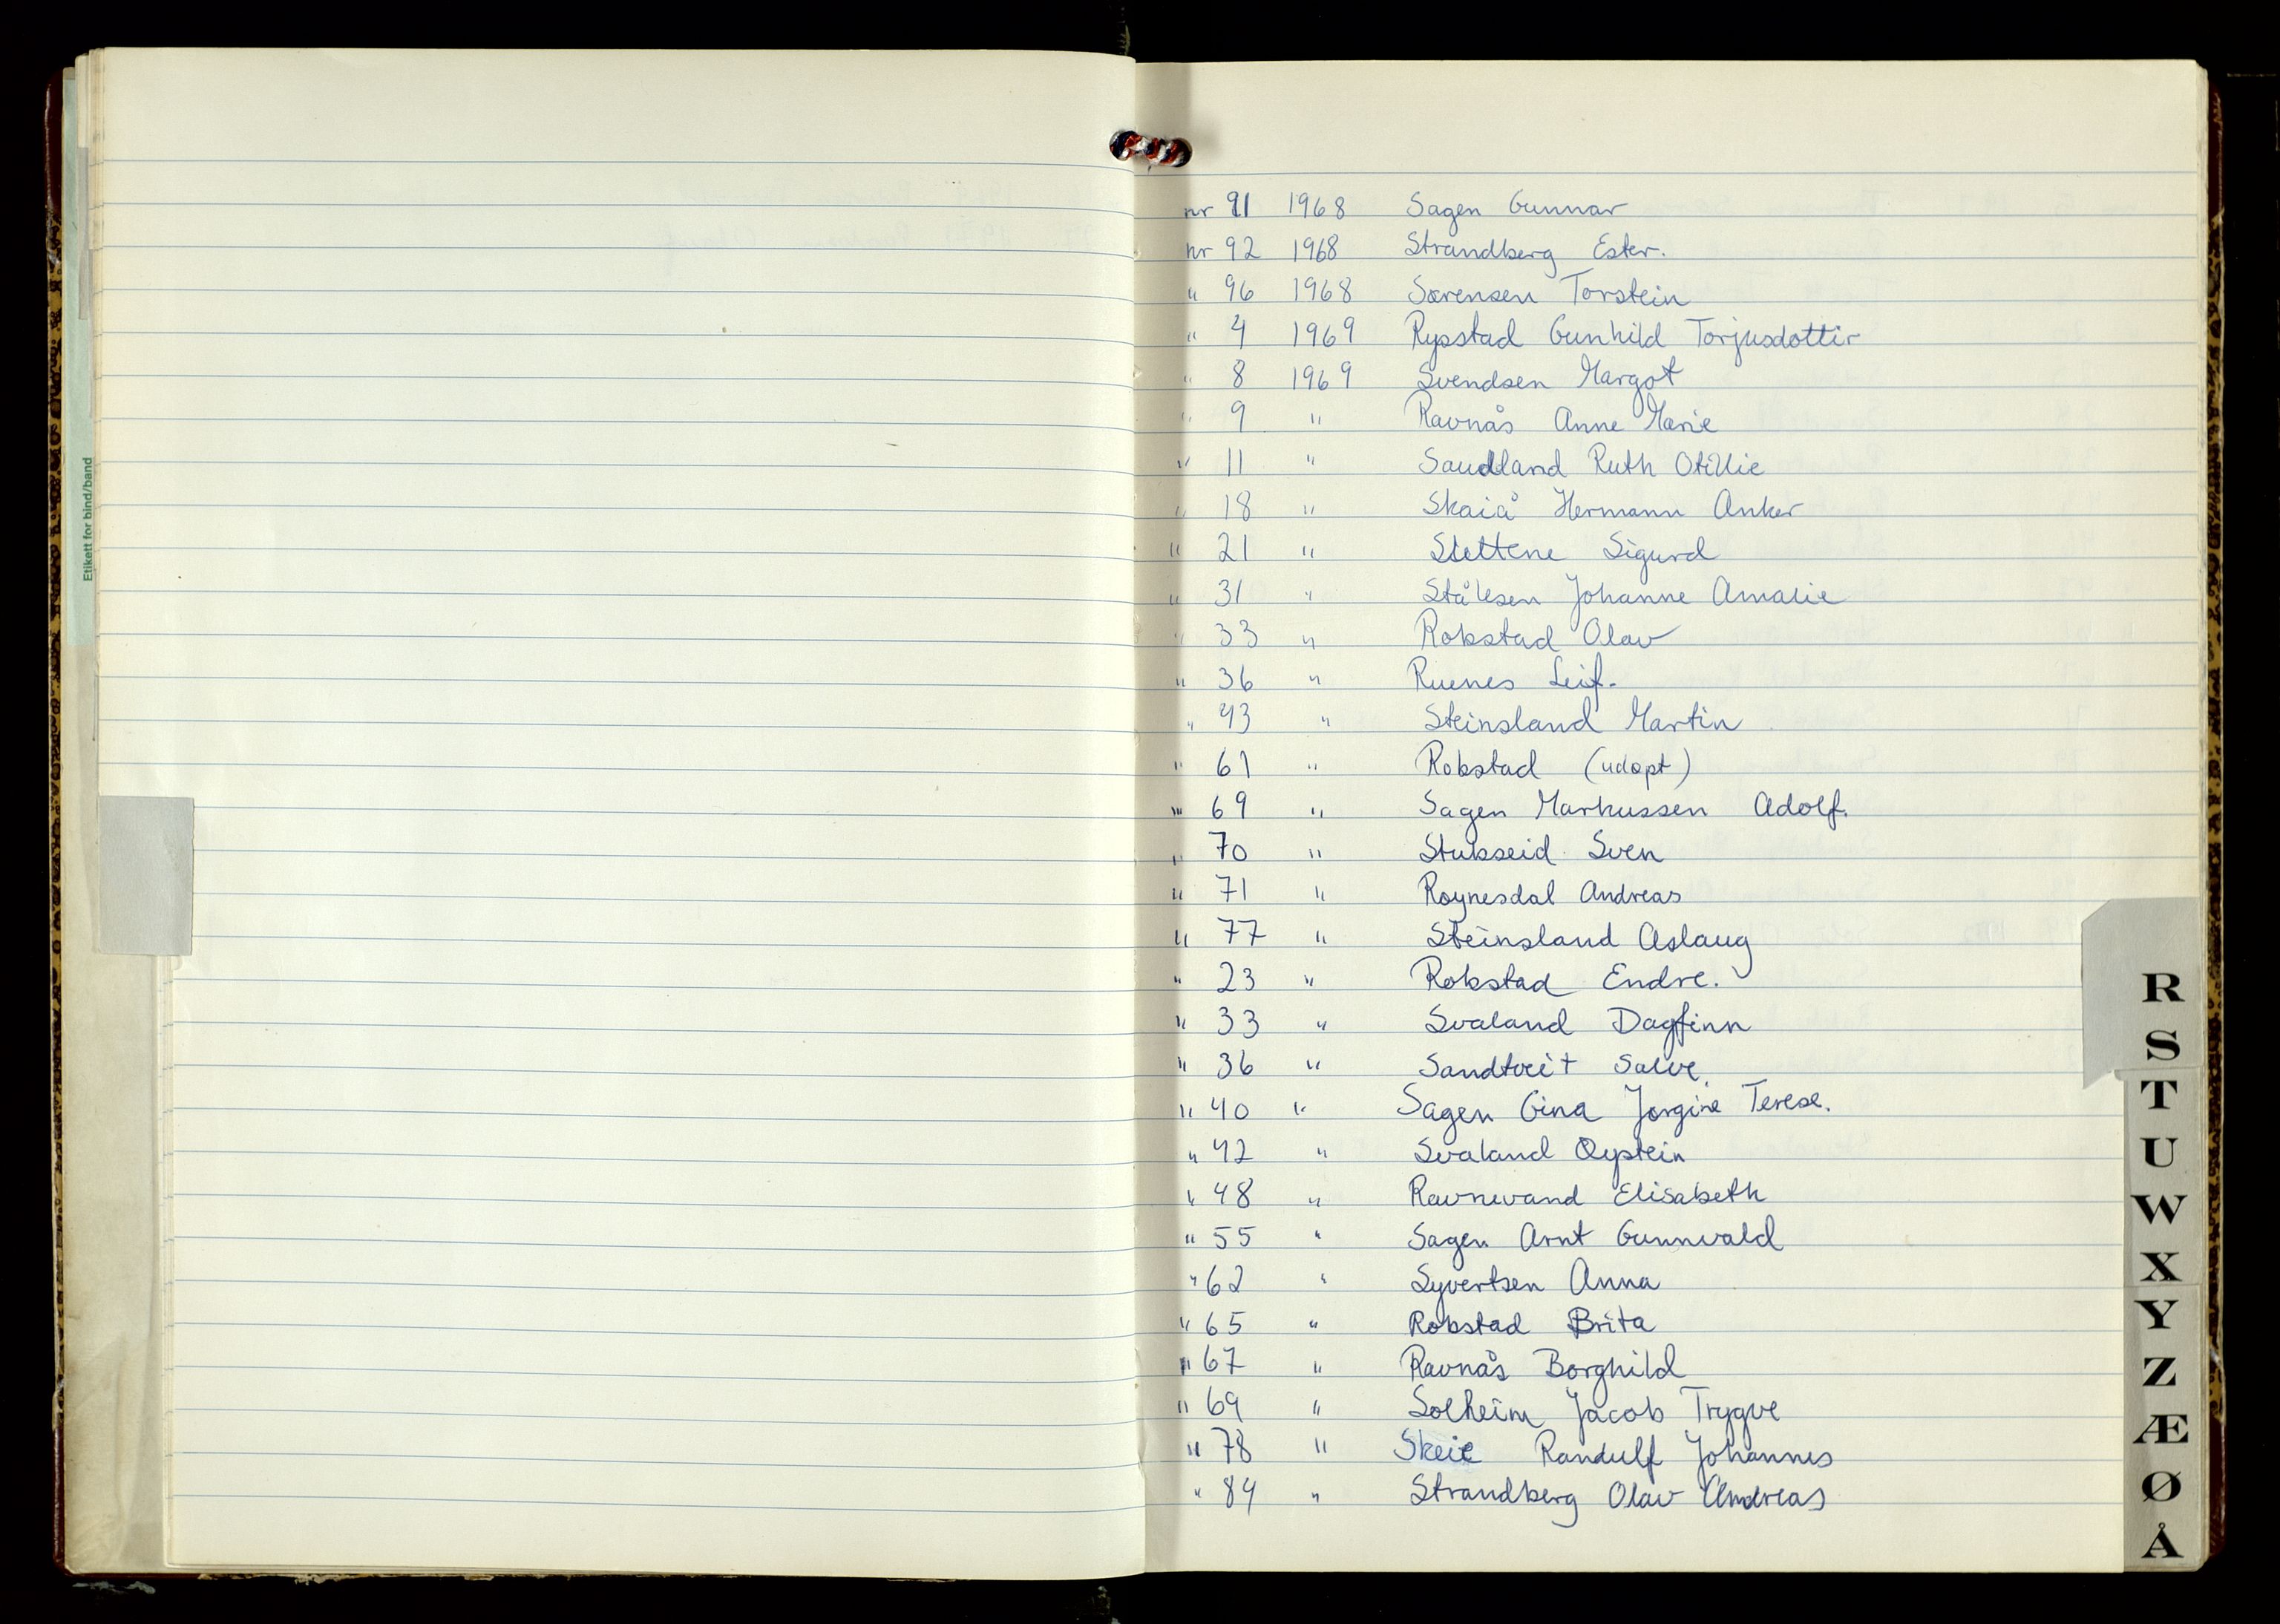 Etikett for bind/band
nr 91 1968 Sagen Gunnar
nr 92 1968 Strandberg Ester.
" 96 1968 Sørensen Torstein
" 4 1969 Rysstad Gunhild Torjusdottir
" 8 1969 Svendsen Margot
" 9 " Ravnås Anne Marie
" 11 " Saudland Ruth Otillie
" 18 " Skaiå Hermann Anker
" 21 " Slettene Sigurd
" 31 " Stålesen Johanne Amalie
" 33 " Robstad Olav
" 36 " Ruenes Leif.
" 43 " Steinsland Martin
" 61 " Robstad (udøpt)
" 69 " Sagen Markussen Adolf.
" 70 " Stubseid Sven
" 71 " Røynesdal Andreas
" 77 " Steinsland Aslaug
" 23 " Robstad Endre.
" 33 " Svaland Dagfinn
" 36 " Sandtveit Salve
" 40 " Sagen Gina Jørgine Terese.
" 42 " Svaland Øystein
" 48 " Ravnevand Elisabeth
" 55 " Sagen Arnt Gunnvald
" 62 " Syvertsen Anna
" 65 " Robstad Brita
" 67 " Ravnås Borghild
" 69 " Solheim Jacob Trygve
" 78 " Skeie Randulf Johannes
" 84 " Strandberg Olav Andreas
R
S
T
U
W
X
Y
Z
Æ
Ø
Å